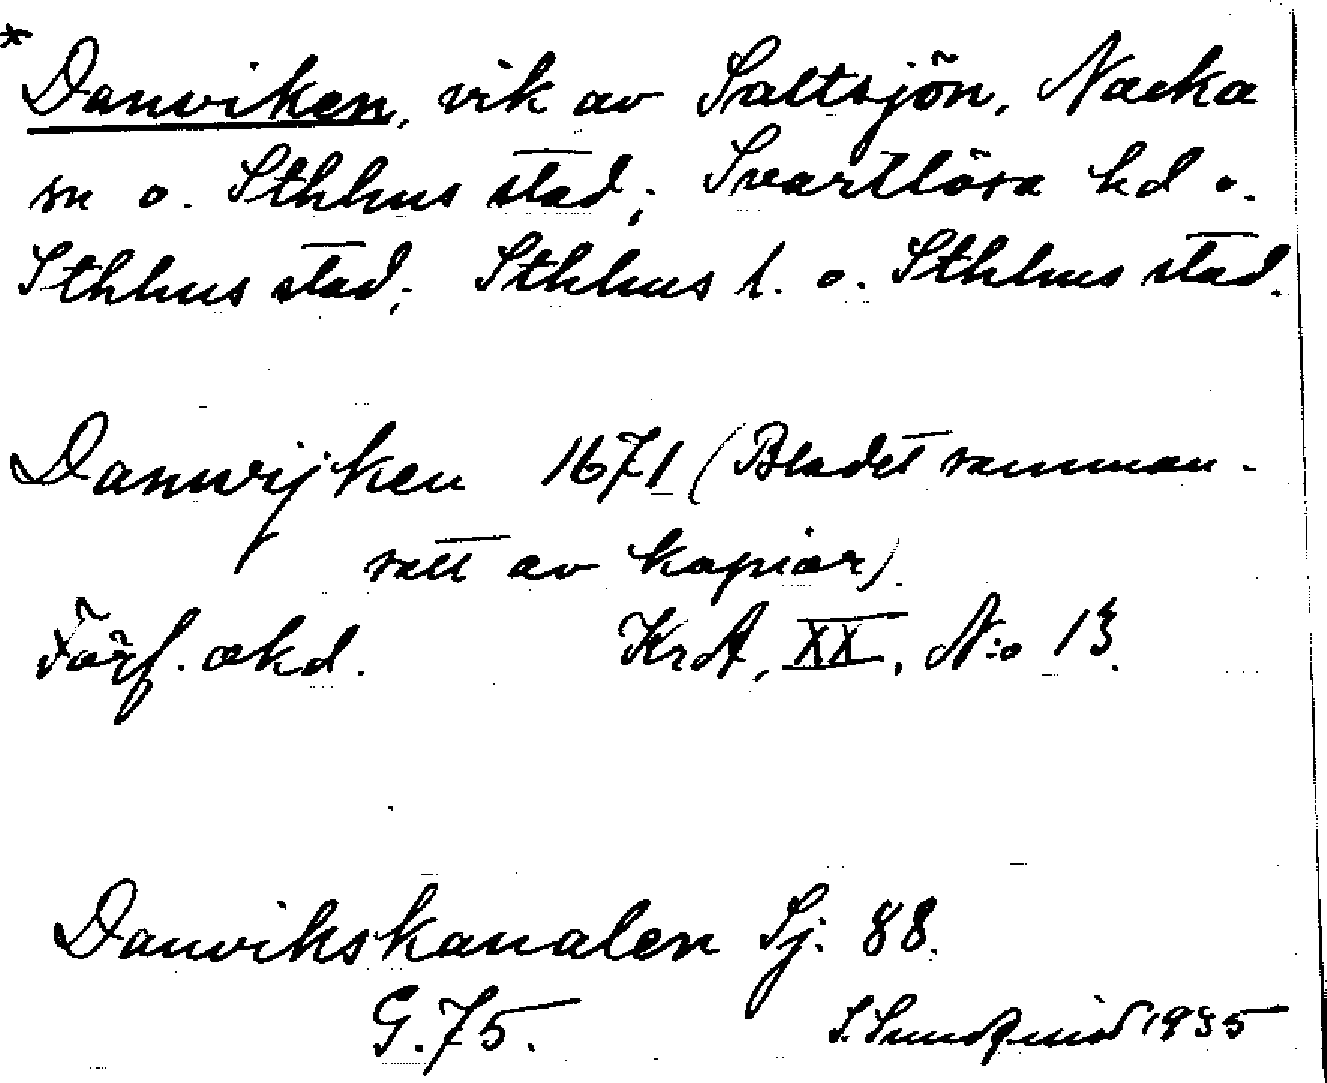 * Danviken, vik av Saltsjön, Nacka
sn o. Sthlms stad; Svartlösa hd o.
Sthlms stad; Sthlms l. o. Sthlms stad.
Danwijken 1671 (Bladet samman-
satt av kopior)
Förf. okd. KrA, XX, N:o 13.
Danvikskanalen Sj. 88.
G. 75. S. Sundqvist 1935